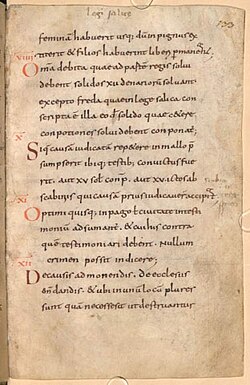 legi salice
feminam habuerit usq; dum in pignus ex
titerit & filios habuerint liberi p̄maneant
VIIII
Omīa debita quae ad partē regis solui
debent solidos xii denariorum soluant
excepto freda quae in lege salica con
scripta ē illa eod̄ solido quae c&ere
conpotiones solui debent conponat;
X
Si quis causā iudicatā rep&ere in mallo p̄
sumpserit ibiq; testib; conuictus fue
rit. aut xv sol conp̄. aut xv ictos ab
scabinis qui causā prius iudicauer̄ accipi&
XI
Optimi quiq; in pago ł ciuitate in testi
moniū adsumant. & cui his contra
quē testimoniari debent. Nullum
crimen possit indicere;
XII
De causis admonendis. de ecclesiis
em̄dandis. & ubi in unū locū plures
sunt quā necesse sit ut destruantur